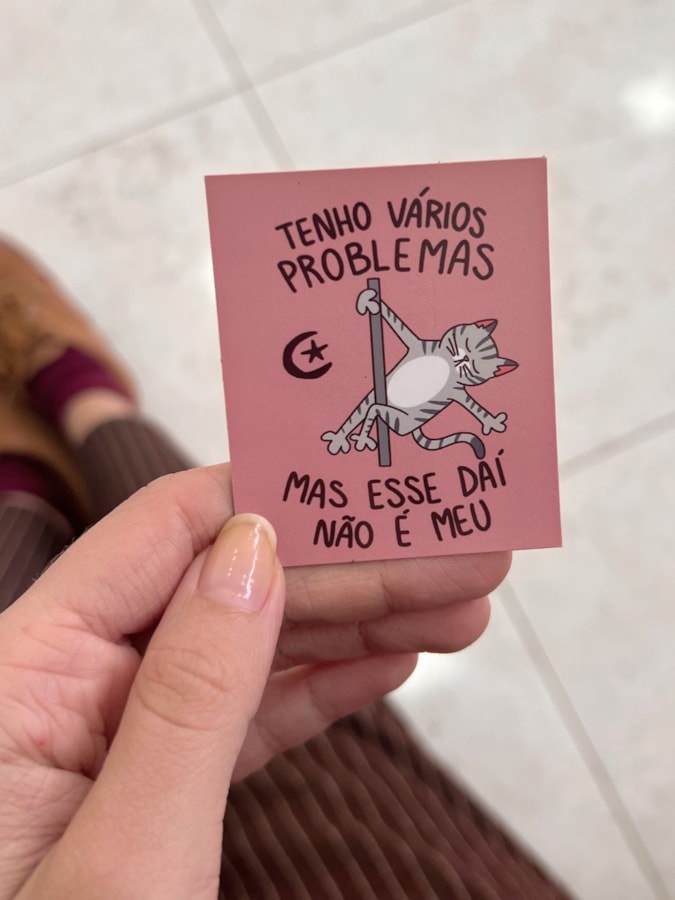 TENHO VÁRIOS
PROBLEMAS
MAS ESSE DAÍ
NÃO É MEU